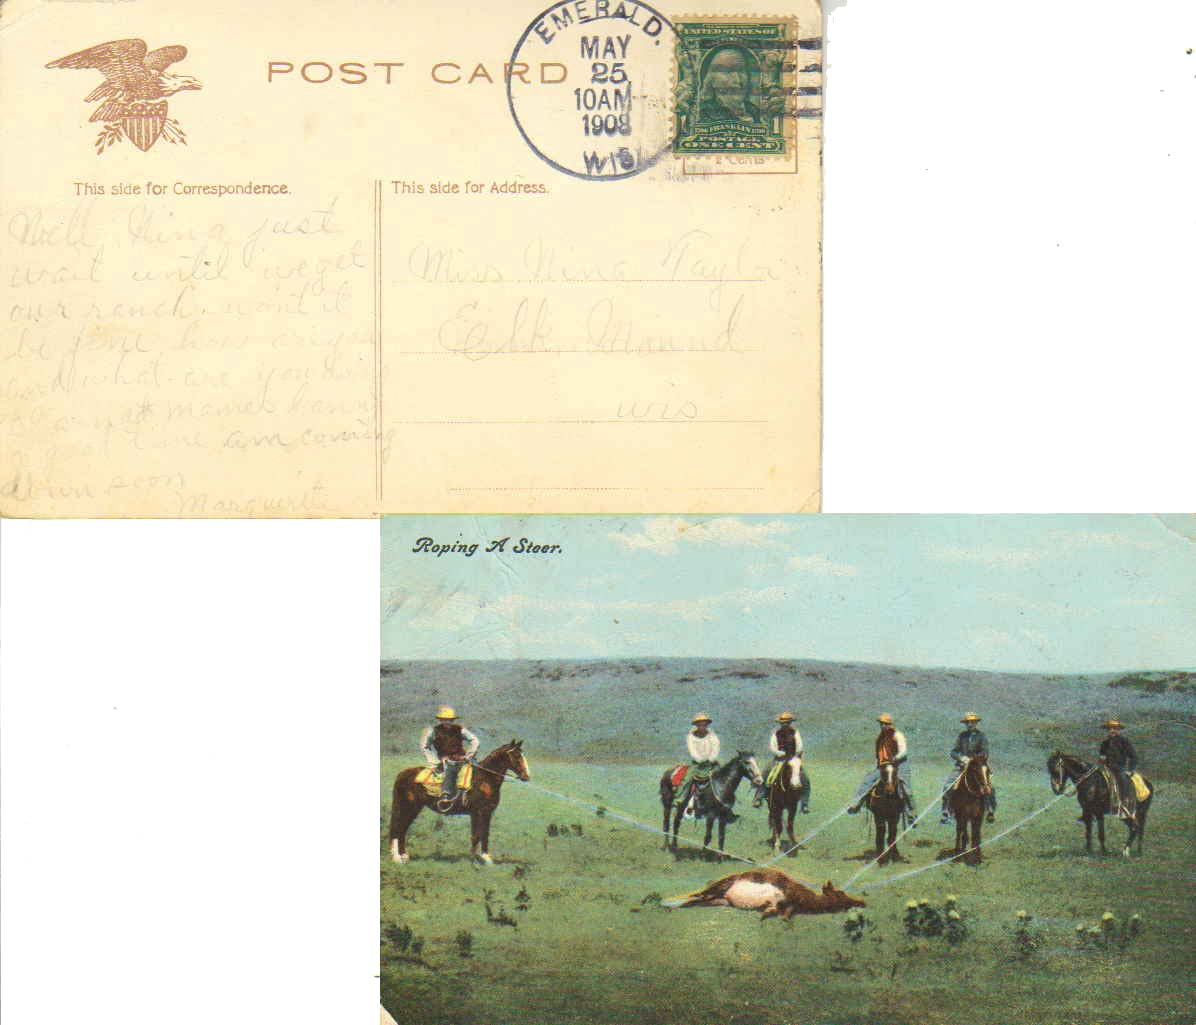 POST CARD
EMERALD.
MAY
25
10AM
1908
WIS
UNITED STATES OF
FRANKLIN
POSTAGE
1 1
ONE CENT
This side for Correspondence.
This side for Address.
Well, Nina just
wait until we get
our ranch. wont it
be fine how are you
and what are you doing
good time am coming
down soon
Marguerite
Miss Nina Taylor
Elk Mound
Wis
Roping A Steer.